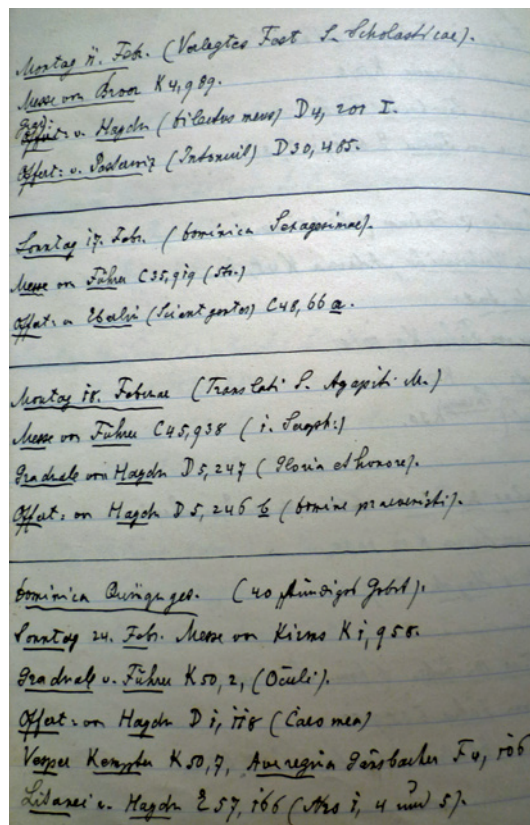 Montag 11. Feb. (Verlegtes Fest S. Scholasticae).
Messe von K4,989.
Grad:
Offert: v. Haydn (dilectus meus) D4, 201 I.
Offert: v. (Intonuit) D30, 485.
Sonntag 17. Febr. (Dominica Sexagesimae).
Messe von Führer C35,919 (Str.)
Offert: v Eberlin (Sicut portas) C48, 66 a.
Montag 18. Februar (Translati S. Agapiti M.)
Messe von Führer C45,938
Graduale von Haydn D5,247 (Gloria et honore).
Offert: von Haydn D5, 246 b (Domine praevenisti).
Dominica Quinquages. (40 stündiges Gebet).
Sonntag 24. Febr. Messe von Kirms K1,958.
Graduale v. Führer K50,2, (Oculi).
Offert: von Haydn D1, 118 (Caro mea)
Vesper Kempter K50,7, Ave regina Gänsbacher F4, 106
Litanei v. Haydn E57, 166 (Nro 1, 4 und 5).